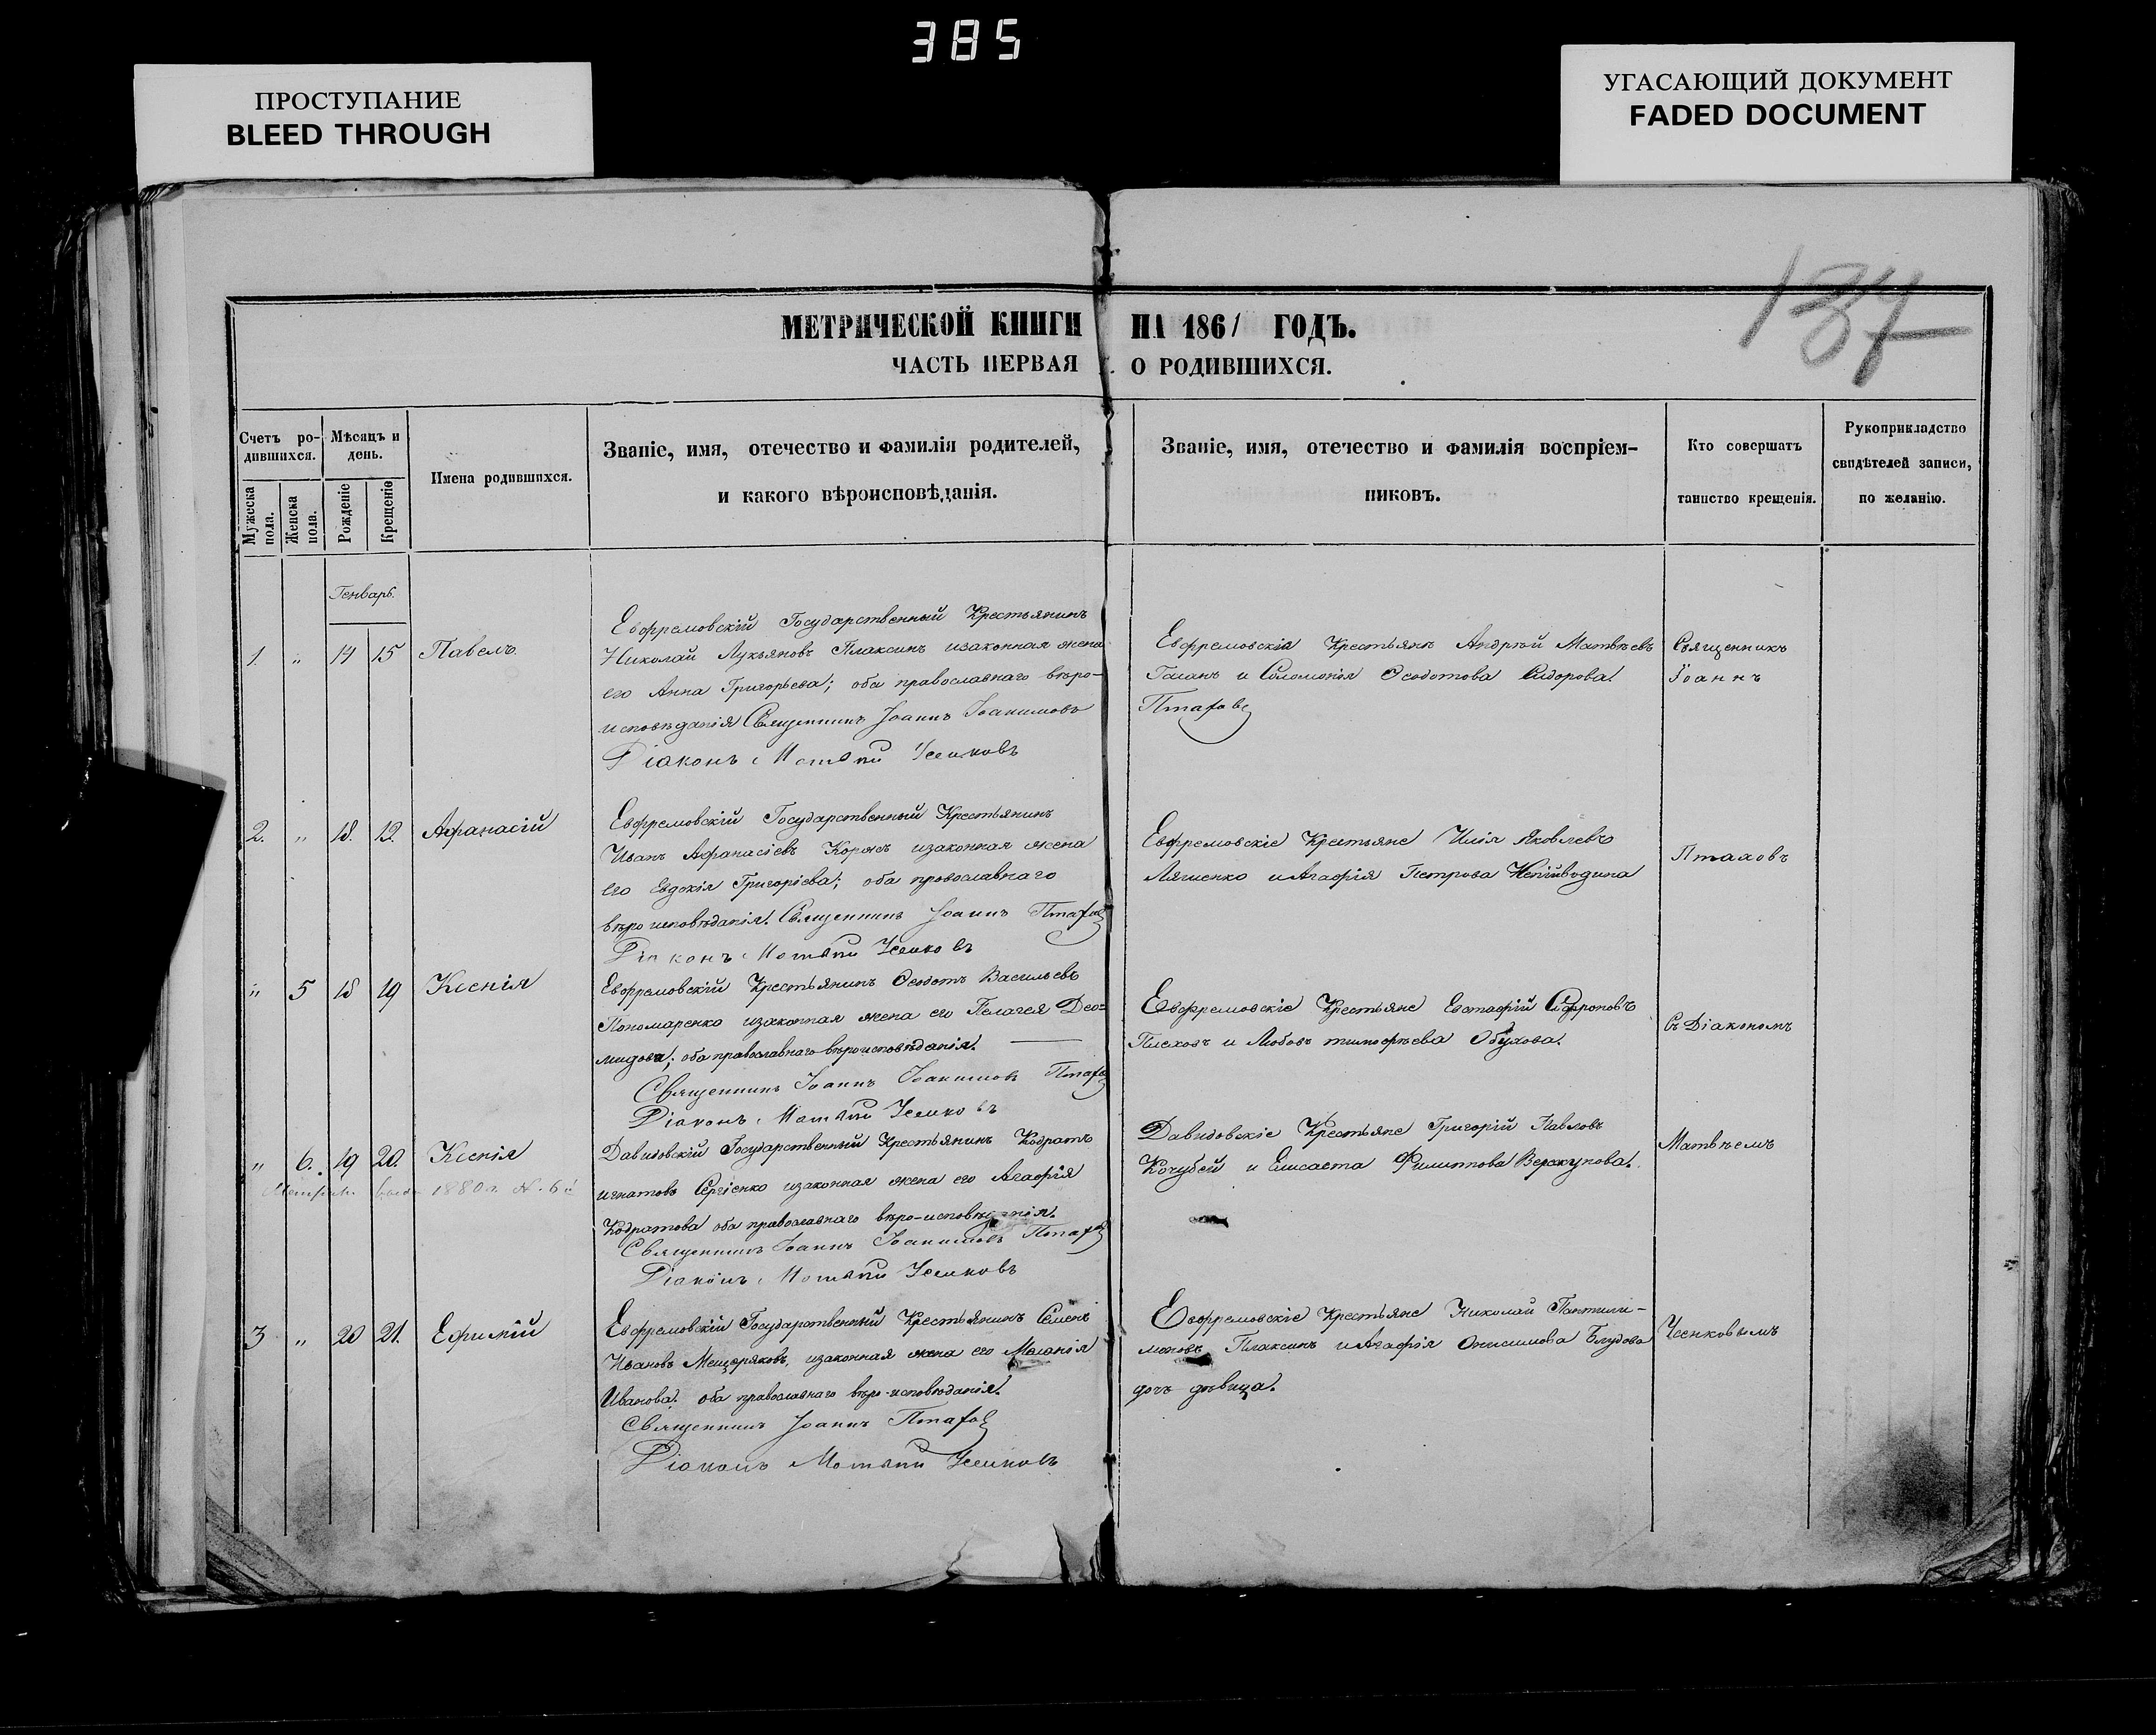 385
ПРОСТУПАНИЕ
BLEED THROUGH
УГАСАЮЩИЙ ДОКУМЕНТ
FADED DOCUMENT
МЕТРИЧЕСКОЙ КНИГИ НА 1861 ГОДЪ.
137
ЧАСТЬ ПЕРВАЯ О РОДИВШИХСЯ.
Счетъ ро-
дившихся.
Мужеска пола.
Женска пола.
Мѣсяцъ и день.
Рожденіе
Крещеніе
Имена родившихся.
Званіе, имя, отечество и фамилія родителей,
и какого вѣроисповѣданія.
Званіе, имя, отечество и фамилія воспріем-
никовъ.
Кто совершатъ
таинство крещенія.
Рукоприкладство
свидѣтелей записи,
по желанію.
Генварь.
1. " 14 15 Павелъ.
Евфремовскій Государственный Крестьянинъ
Николай Лукьяновъ Плаксинъ изаконная жена
его Анна Григорьева; оба православнаго вѣро-
исповѣданія Священникъ Іоаннъ Іоакимовъ
Птахов
Діаконъ Матвѣй
Евфремовскія Крестьянъ Андрѣй Матвѣевъ
и Соломонія Ѳеодотова Сидорова.
Священникъ
Іоаннъ
2. " 18. 19. Афанасій
Евфремовскій Государственный Крестьянинъ
Иванъ Афанасіевъ изаконная жена
его Евдокія Григоріева; оба провославнаго
вѣроисповѣданія. Священникъ Іоаннъ Птахов
Діаконъ Матвѣй
Евфремовскіе Крестьяне Илія Яковлевъ
Ляшенко иАгафія Петрова
Птаховъ
" 5 18 19 Ксенія
Евфремовскій Крестьянинъ Ѳеодотъ Васильевъ
Пономаренко изаконная жена его Пелагея Део=
мидова; оба православнаго вѣроисповѣданія.
Священникъ Іоаннъ Іоакимовъ Птахов
Діаконъ Матвѣй
Евфремовскіе Крестьяне Евстафій Софроновъ
и Любовь тимофѣева Обухова.
Съ Діакономъ
" 6. 19 20. Ксенія
1880
Давидовскій Государственный Крестьянинъ Кодратъ
игнатовъ Сергіенко изаконная жена его Агафія
Кодратова оба православнаго вѣро-исповѣданія.
Священникъ Іоаннъ Іоакимовъ Птахов
Діаконъ Матвѣй
Давидовскіе Крестьяне Григорій Павловъ
Кочубей и Елисавета Филиппова
Матвѣемъ
3 " 20 21. Ефимій
Евфремовскій Государственный Крестьянинъ Семенъ
Ивановъ Мещеряковъ, изаконная жена его Меланія
Иванова. оба православнаго вѣро-исповѣданія.
Священникъ Іоаннъ Птахов
Діаконъ Матвѣй
Евфремовскіе Крестьяне Николай Пантили-
моновъ Плаксинъ иАгафія Онисимова Блудова
дочь дѣвица.